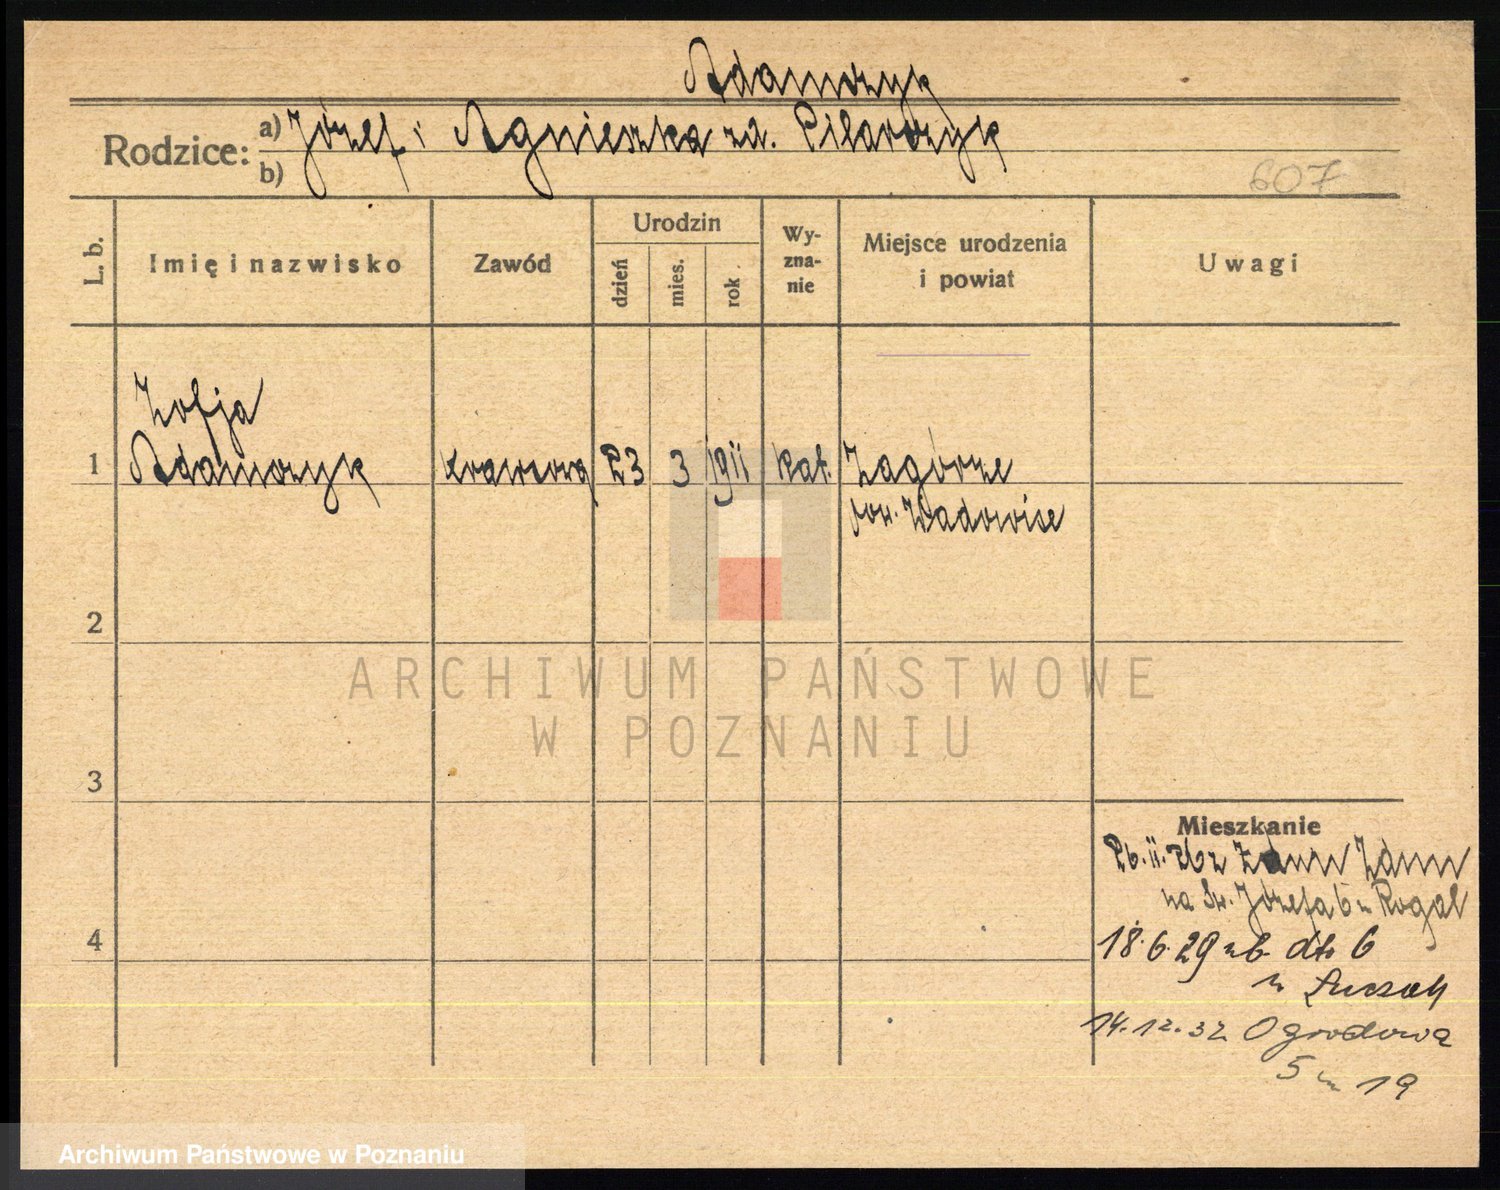 Adamczyk
Rodzice: a) Józef i Agnieszka zd. Pilarczyk
b)
607
L. b. Imię i nazwisko Zawód Urodzin dzień mies. rok Wy-zna-nie Miejsce urodzenia i powiat Uwagi
Zofja
1 Adamczyk Krawcowa 23 3 1911 kat. Zagórze
pow. Wadowice
2
ARCHIWUM PAŃSTWOWE
W POZNANIU
3
Mieszkanie
26.11. z Zduny
na Św. Józefa 6 u Rogal
4
18.6.29 dto 6
u
14.12.32 Ogrodowa
5 m 19
Archiwum Państwowe w Poznaniu